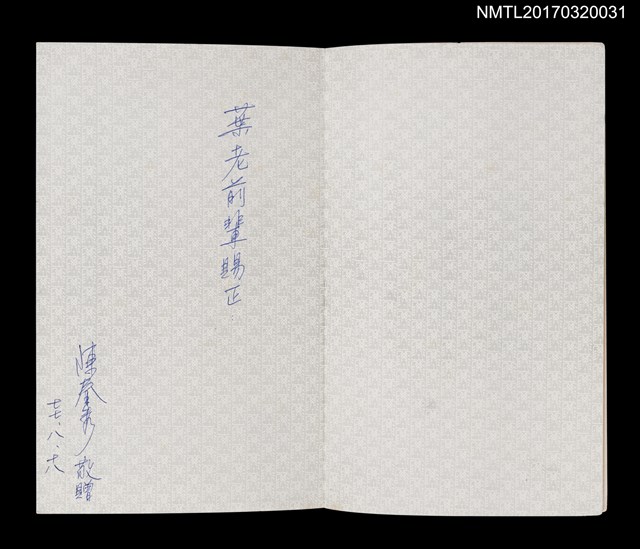 NMTL20170320031
葉老前輩賜正
陳奎秀敬贈
七七.八.十八